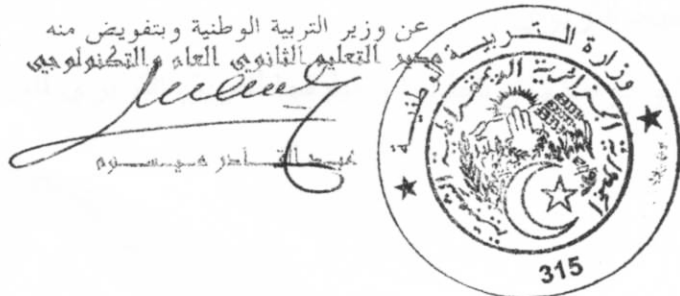 عن وزير التربية الوطنية وبتفويض منه
مدير التعليم الثانوي العام والتكنولوجي
عبد القادر ميسوم
وزارة التربية الوطنية
الجمهورية الجزائرية الديمقراطية الشعبية
315